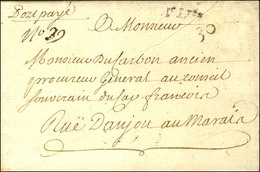 Port payé
No 39
A Monsieur
30
Monsieur Dusarbon ancien
procureur General au conseil
souverain du Cap francois
Ruë Danjou au Marais